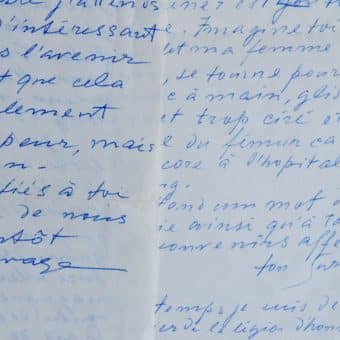 d'intéressant
s l'avenir
t que cela
lement
peur, mais
n.
tiés à toi
de nous
ntôt
Imagine toi
et ma femme
, se tourne pour
c à main, glis
et trop ciré et
e du fémur ca
core à l'hopital
ond un mot
ie ainsi qu'à
onvenirs affe
ton
temps, je suis de
er de la légion d'hon